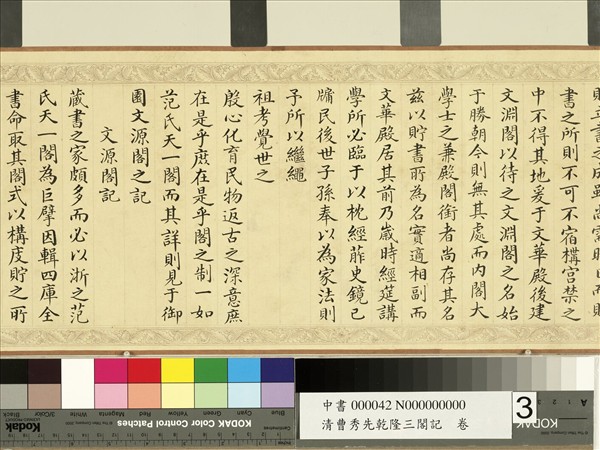 則立書之成雖尚需時日而貯
書之所則不可不宿構宮禁之
中不得其地爰于文華殿後建
文淵閣以待之文淵閣之名始
于勝朝今則無其處而內閣大
學士之兼殿閣銜者尚存其名
茲以貯書所為名實適相副而
文華殿居其前乃歲時經筵講
學所必臨于以枕經葄史鏡己
牖民後世子孫奉以為家法則
予所以繼繩
祖考覺世之
殷心化育民物返古之深意庶
在是乎庶在是乎閣之制一如
范氏天一閣而其詳則見于御
園文源閣之記
文源閣記
藏書之家頗多而必以浙之范
氏天一閣為巨擘因輯四庫全
書命取其閣式以構庋貯之所
Black
3/Color
White
Magenta
Red
Yellow
Green
Cyan
Blue
Kodak
KODAK Color Control Patches
Centimetres
中書 000042 N000000000
清曹秀先乾隆三閣記 卷
3
A 1 2